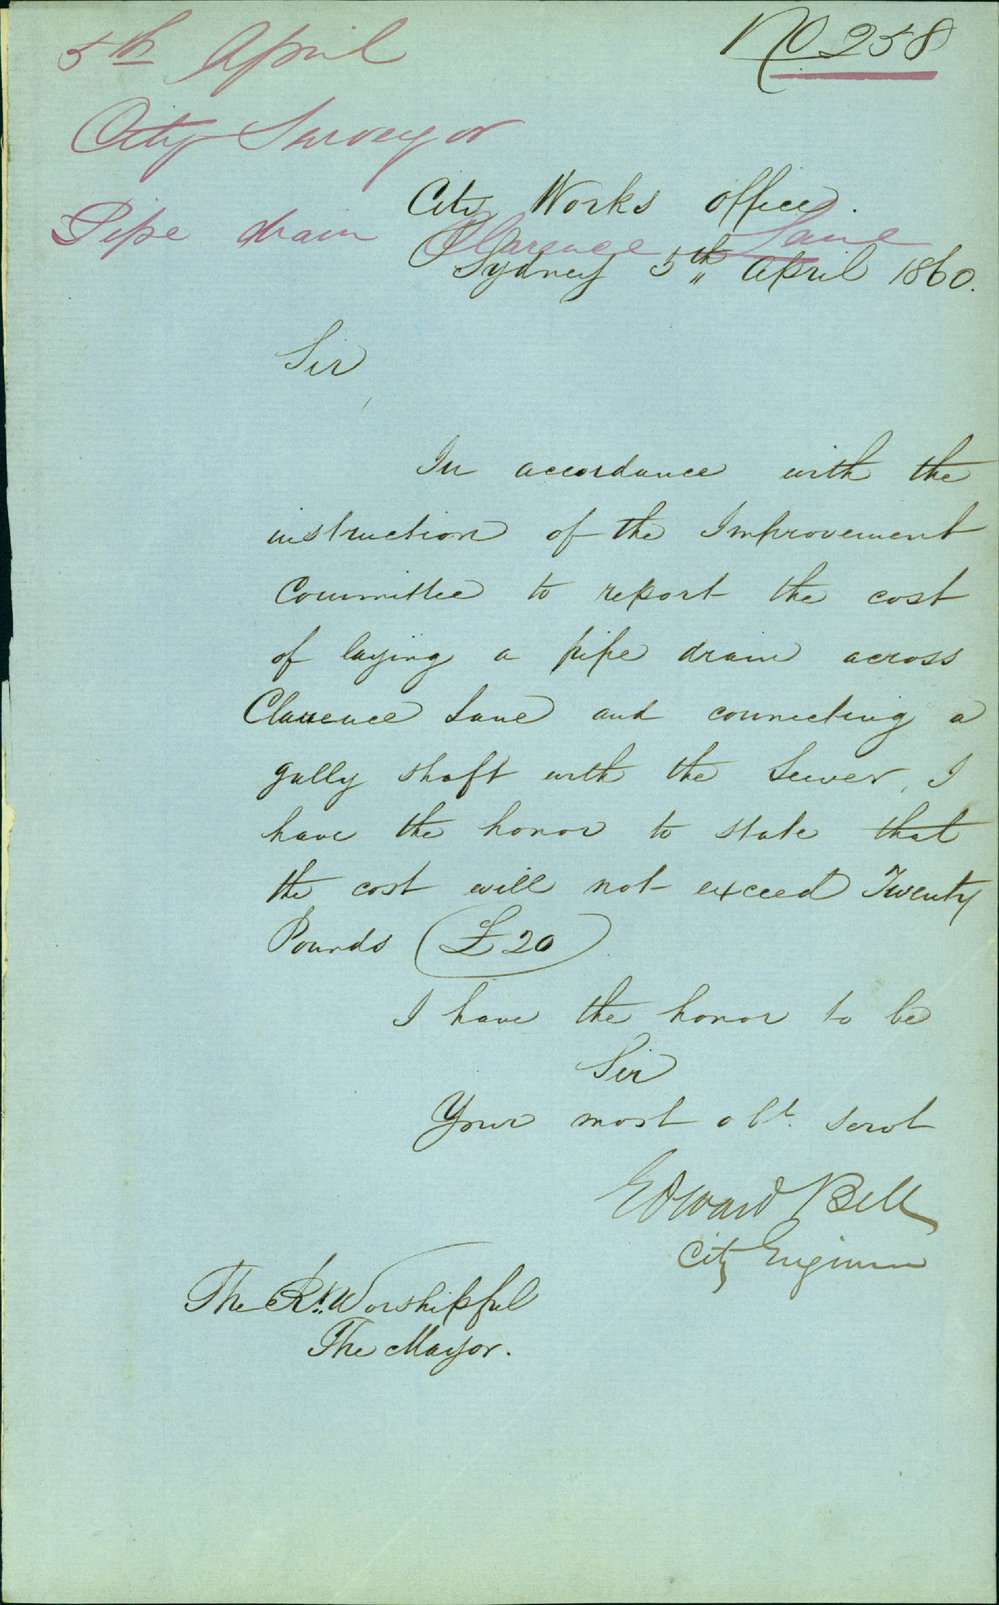 No 258
5th April
City Surveyor
Pipe drain Clarence Lane
City Works office.
Sydney 5th April 1860.
Sir,
In accordance with the
instruction of the Improvement
Committee to report the cost
of laying a pipe drain across
Clarence Lane and connecting a
gully shaft with the Sewer, I
have the honor to state that
the cost will not exceed Twenty
Pounds (£20)
I have the honor to be
Sir
Your most obt. servt
Edward Bell
City Engineer
The Rt. Worshipful
The Mayor.